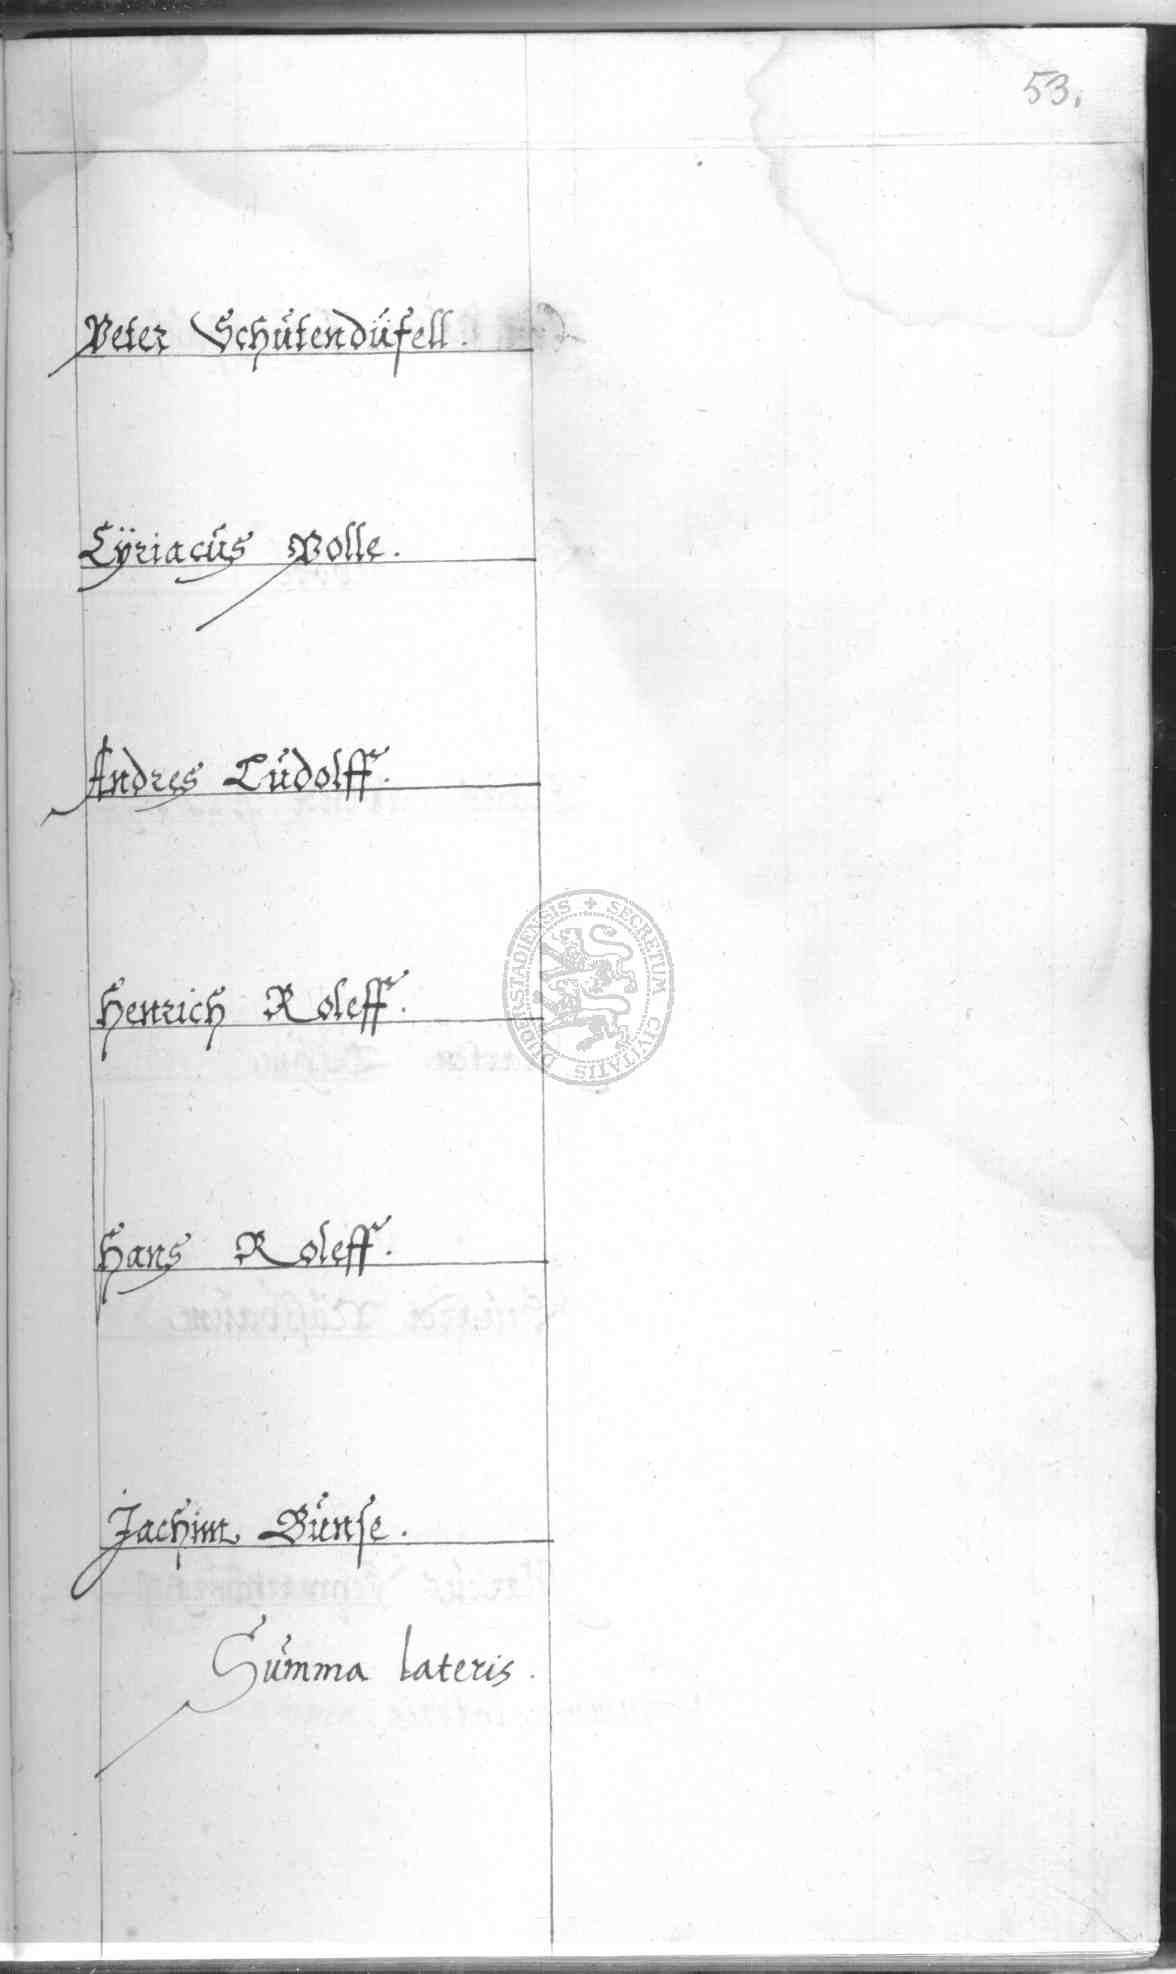 53.
Peter Schütendüfell.
Cÿriacus Polle.
Andres Ludolff.
Henrich Roleff.
Hans Roleff.
Jachim Bunse.
Summa lateris.
SECRETUM CIVITATIS DUDERSTADIENSIS